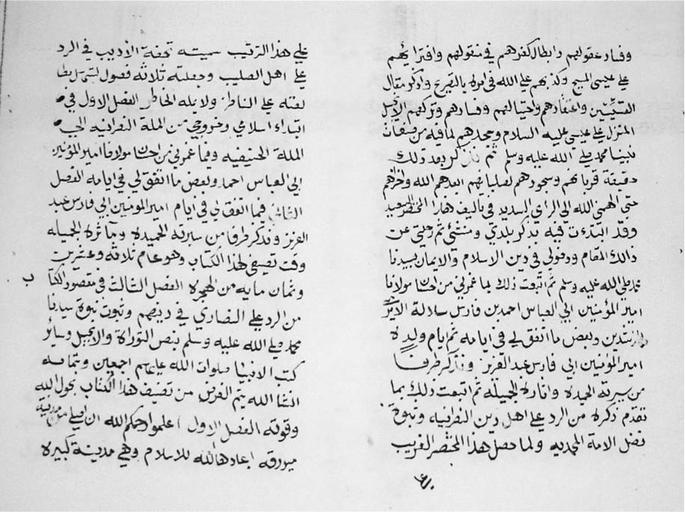 وفساد عقولهم وابطال كفرهم في منقولهم وافترائهم
على عيسى المسيح وكذبهم على الله في امره بالتصريح واذكر مقال
القسيسين واعتقادهم واحتيالهم وفسادهم وتركهم الانجيل
المنزل على عيسى عليه السلام وجحدهم لما فيه من صفات
نبينا محمد صلى الله عليه وسلم ثم نذكر بعد ذلك
حقيقة قربانهم وسجودهم لصلبانهم ابعدهم الله واخزاهم
حتى الهمني الله الى الراي السديد في تاليف هذا المختصر السعيد
وقد ابتدئت فيه بذكر بلدي ومنشئي ثم رحلتي عن
ذالك المقام ودخولي في دين الاسلام والايمان بسيدنا
محمد صلى الله عليه وسلم ثم اتبعت ذلك بما غمرني من احسان مولانا
امير المؤمنين ابي العباس احمد بن فارس سلالة الامراء
الراشدين وبعض ما اتفق لي في ايامه ثم ايام ولده
امير المؤمنين ابي فارس عبد العزيز ونذكر طرفا
من سيرته الحميدة واثاره الجميله ثم اتبعت ذلك بما
تقدم ذكره من الرد على اهل دين النصرانيه وثبوت
فضل الامة المحمديه ولما حصل هذا المختصر الغريب
على هذا الترتيب سميته تحفة الاديب في الرد
على اهل الصليب وجعلته ثلاثة فصول
على الناظر ولا يمله الخاطر الفصل الاول في
ابتداء اسلامي وخروجي من الملة النصرانية الى
الملة الحنيفيه وفيما غمرني من احسان مولانا امير المؤمنين
ابي العباس احمد وبعض ما اتفق لي في ايامه الفصل
الثاني فيما اتفق لي في ايام امير المومنين ابي فارس عبد
العزيز ونذكر طرفا من سيرته الحميدة ومآثره الجميله
وقت تصنيفي لهذا الكتاب وهو عام ثلاثة وعشرين
وثمان مايه من الهجره الفصل الثالث في مقصود الكتاب
من الرد على النصارى في دينهم وثبوت نبوة سيدنا
محمد صلى الله عليه وسلم بنص التوراة والانجيل وسائر
كتب الانبيا صلوات الله عليهم اجمعين وبتمامه
انشا الله يتم الغرض من تصنيف هذا الكتاب بحول الله
وقوته الفصل الاول اعلموا رحمكم الله ان اصلي من مدينة
ميورقه اعادها الله للاسلام وهي مدينة كبيره